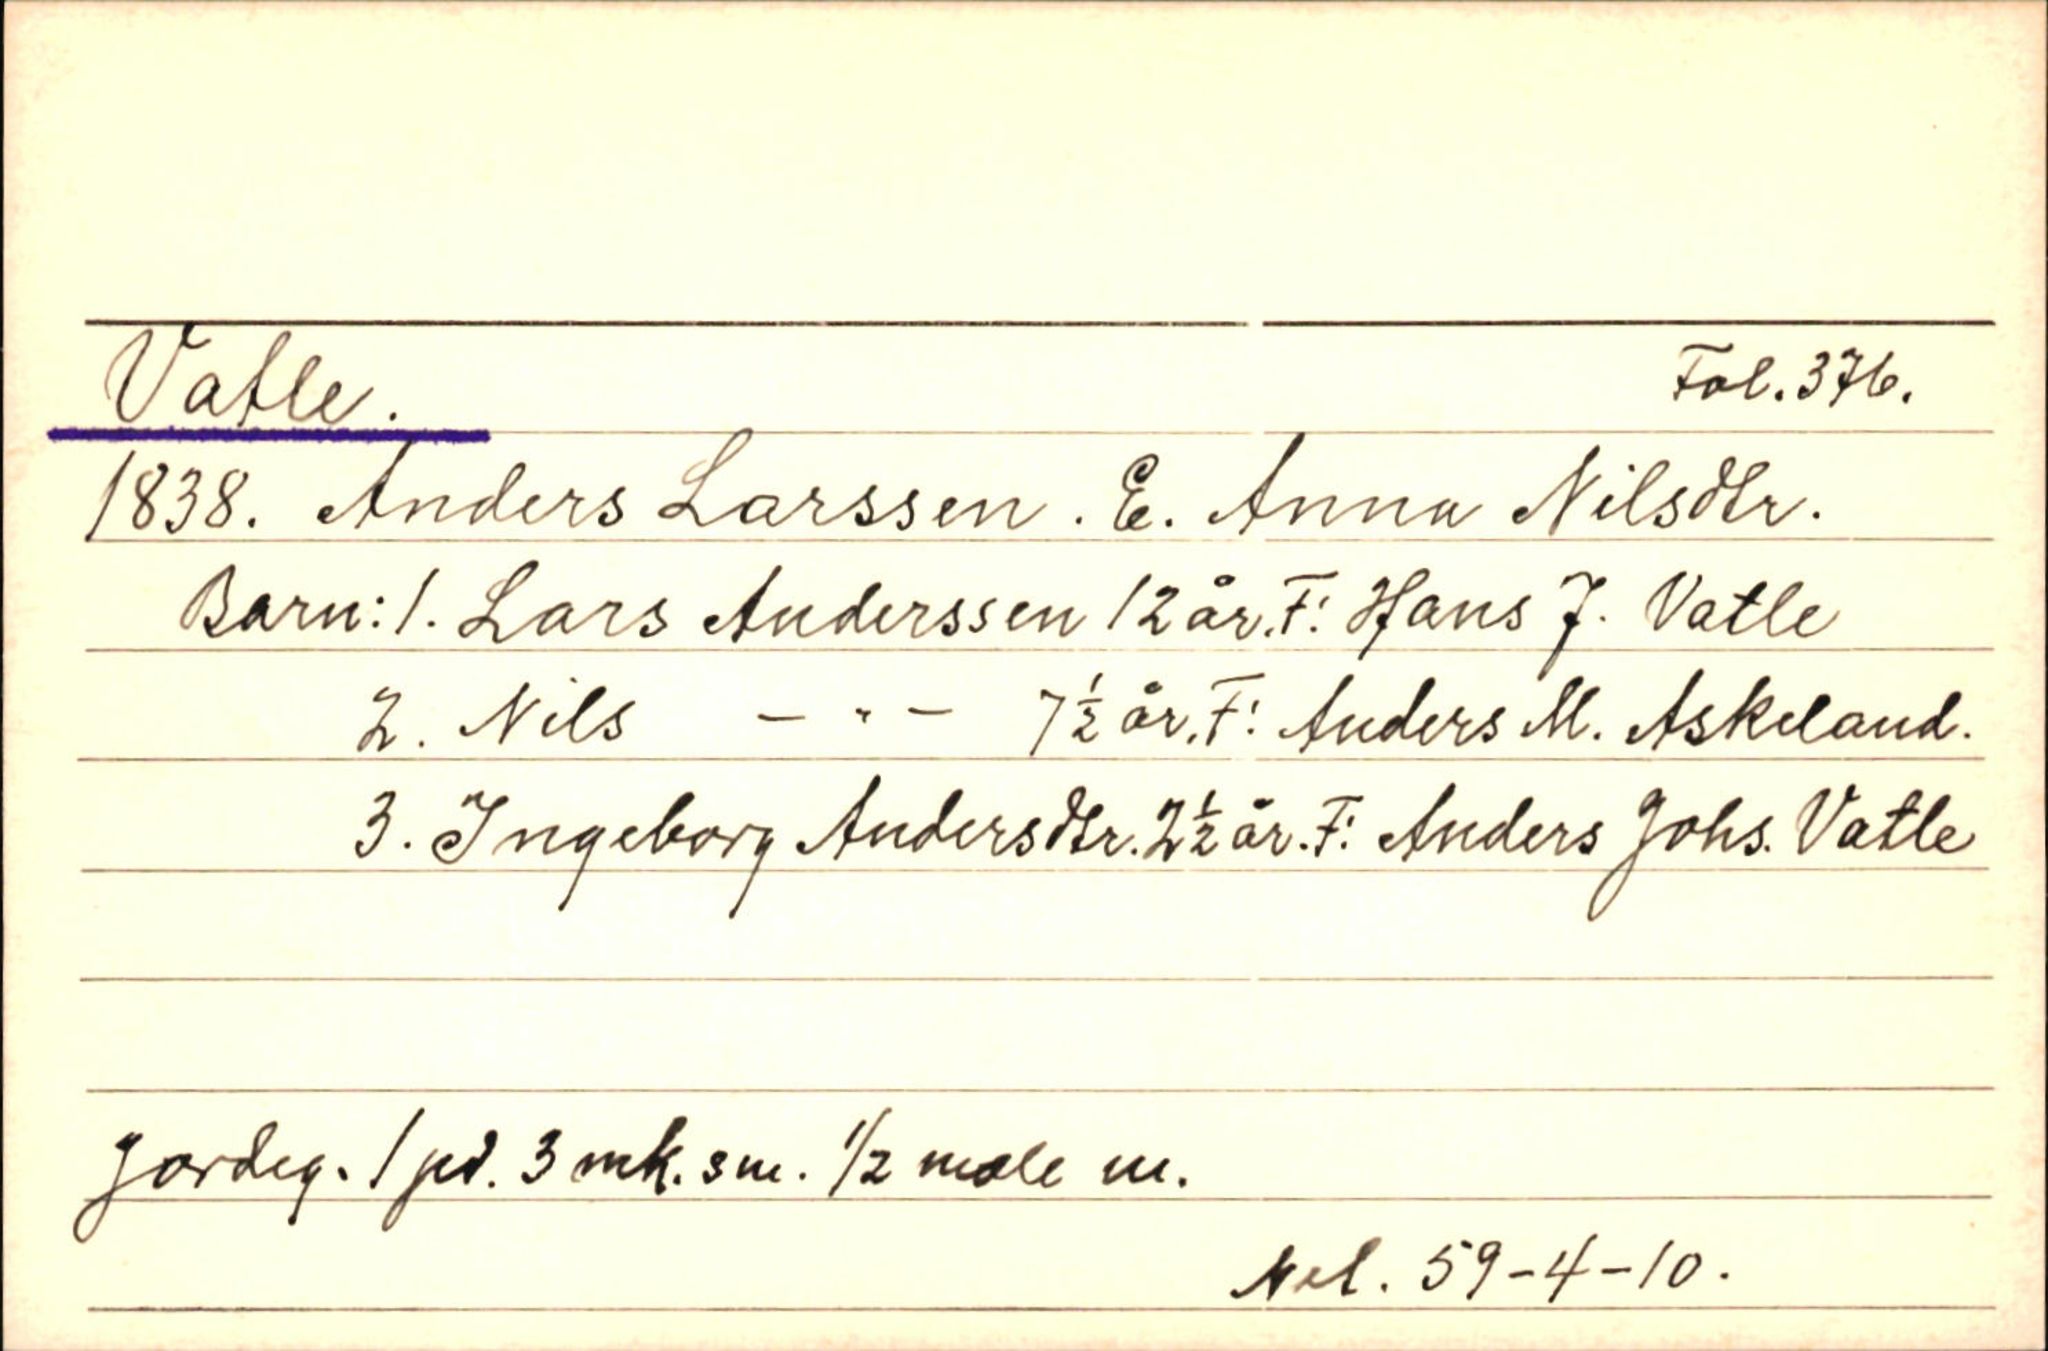 Vatle. Fol. 376.
1838. Anders Larssen. E. Anna Nilsdtr.
Barn: 1. Lars Anderssen 12 år. F: Hans J. Vatle
2. Nils — " — 7 1/2 år. F: Anders M. Askeland.
3. Ingeborg Andersdtr. 2 1/2 år. F: Anders Johs. Vatle
Jordeg. 1 pd. 3 mk. sm. 1/2 mæle m.
Nel. 59-4-10.